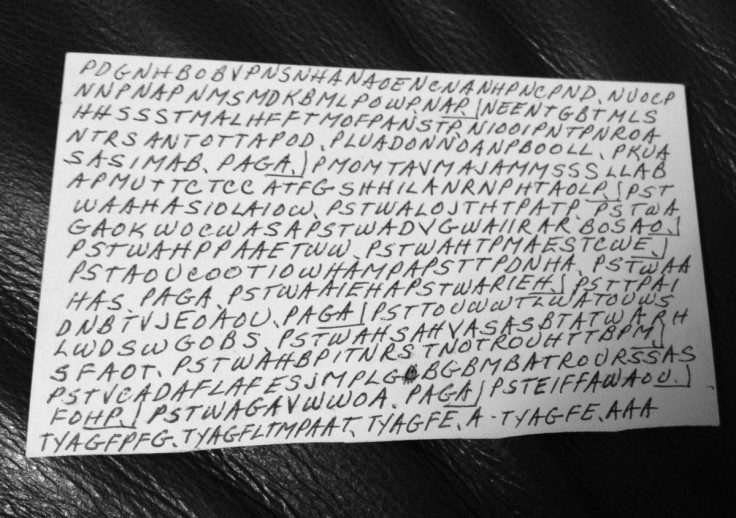 PDGNHBOBVPNSNHANAOENCNANHPNCPND, NUOCP
NNPNAPNMSMDKBMLPOWP, NAP.) NEENTGBTMLS
HHSSSTMALHFFTMOFPANSTP, NIOOIPNTPNROA
NTRSANTOTTAPOD, PLUADONNOANPBOOLL, PKUA
SASIMAB, PAGA.) PMOMTAVMAJAMMSSSLLAB
APMUTTCTCC ATFGSHHILANRNPHTAOLP.) PST
WAAHASIOLAIOW, PSTWALOJTHTPATP, PSTWA
GAOKWOCWASAPSTWADVGWAIIRARBOSAO.)
PSTWAHPPAAETWW, PSTWAHTPMAESTCWE.)
PSTAOUCOOTIOWHAMPAPSTTPDNHA, PSTWAA
HAS, PAGA, PSTWAAIEHAPSTWARIEH.) PSTTPAI
DNBTVJEOAOU, PAGA) PSTTOUWWTLWATOUWS
LWDSWGOBS, PSTWAHSAHVASASBTATWARH
SFAOT, PSTWAHBPITNRSTNOTROUHTTBPM)
PSTVCADAFLAFESJMPLGBGBMBATROURSSAS
FOHP.) PSTWAGAVWWOA, PAGA) PSTEIFFAWAOU.)
TYAGFPFG, TYAGFLTMPAAT, TYAGFE, A-TYAGFE, AAA